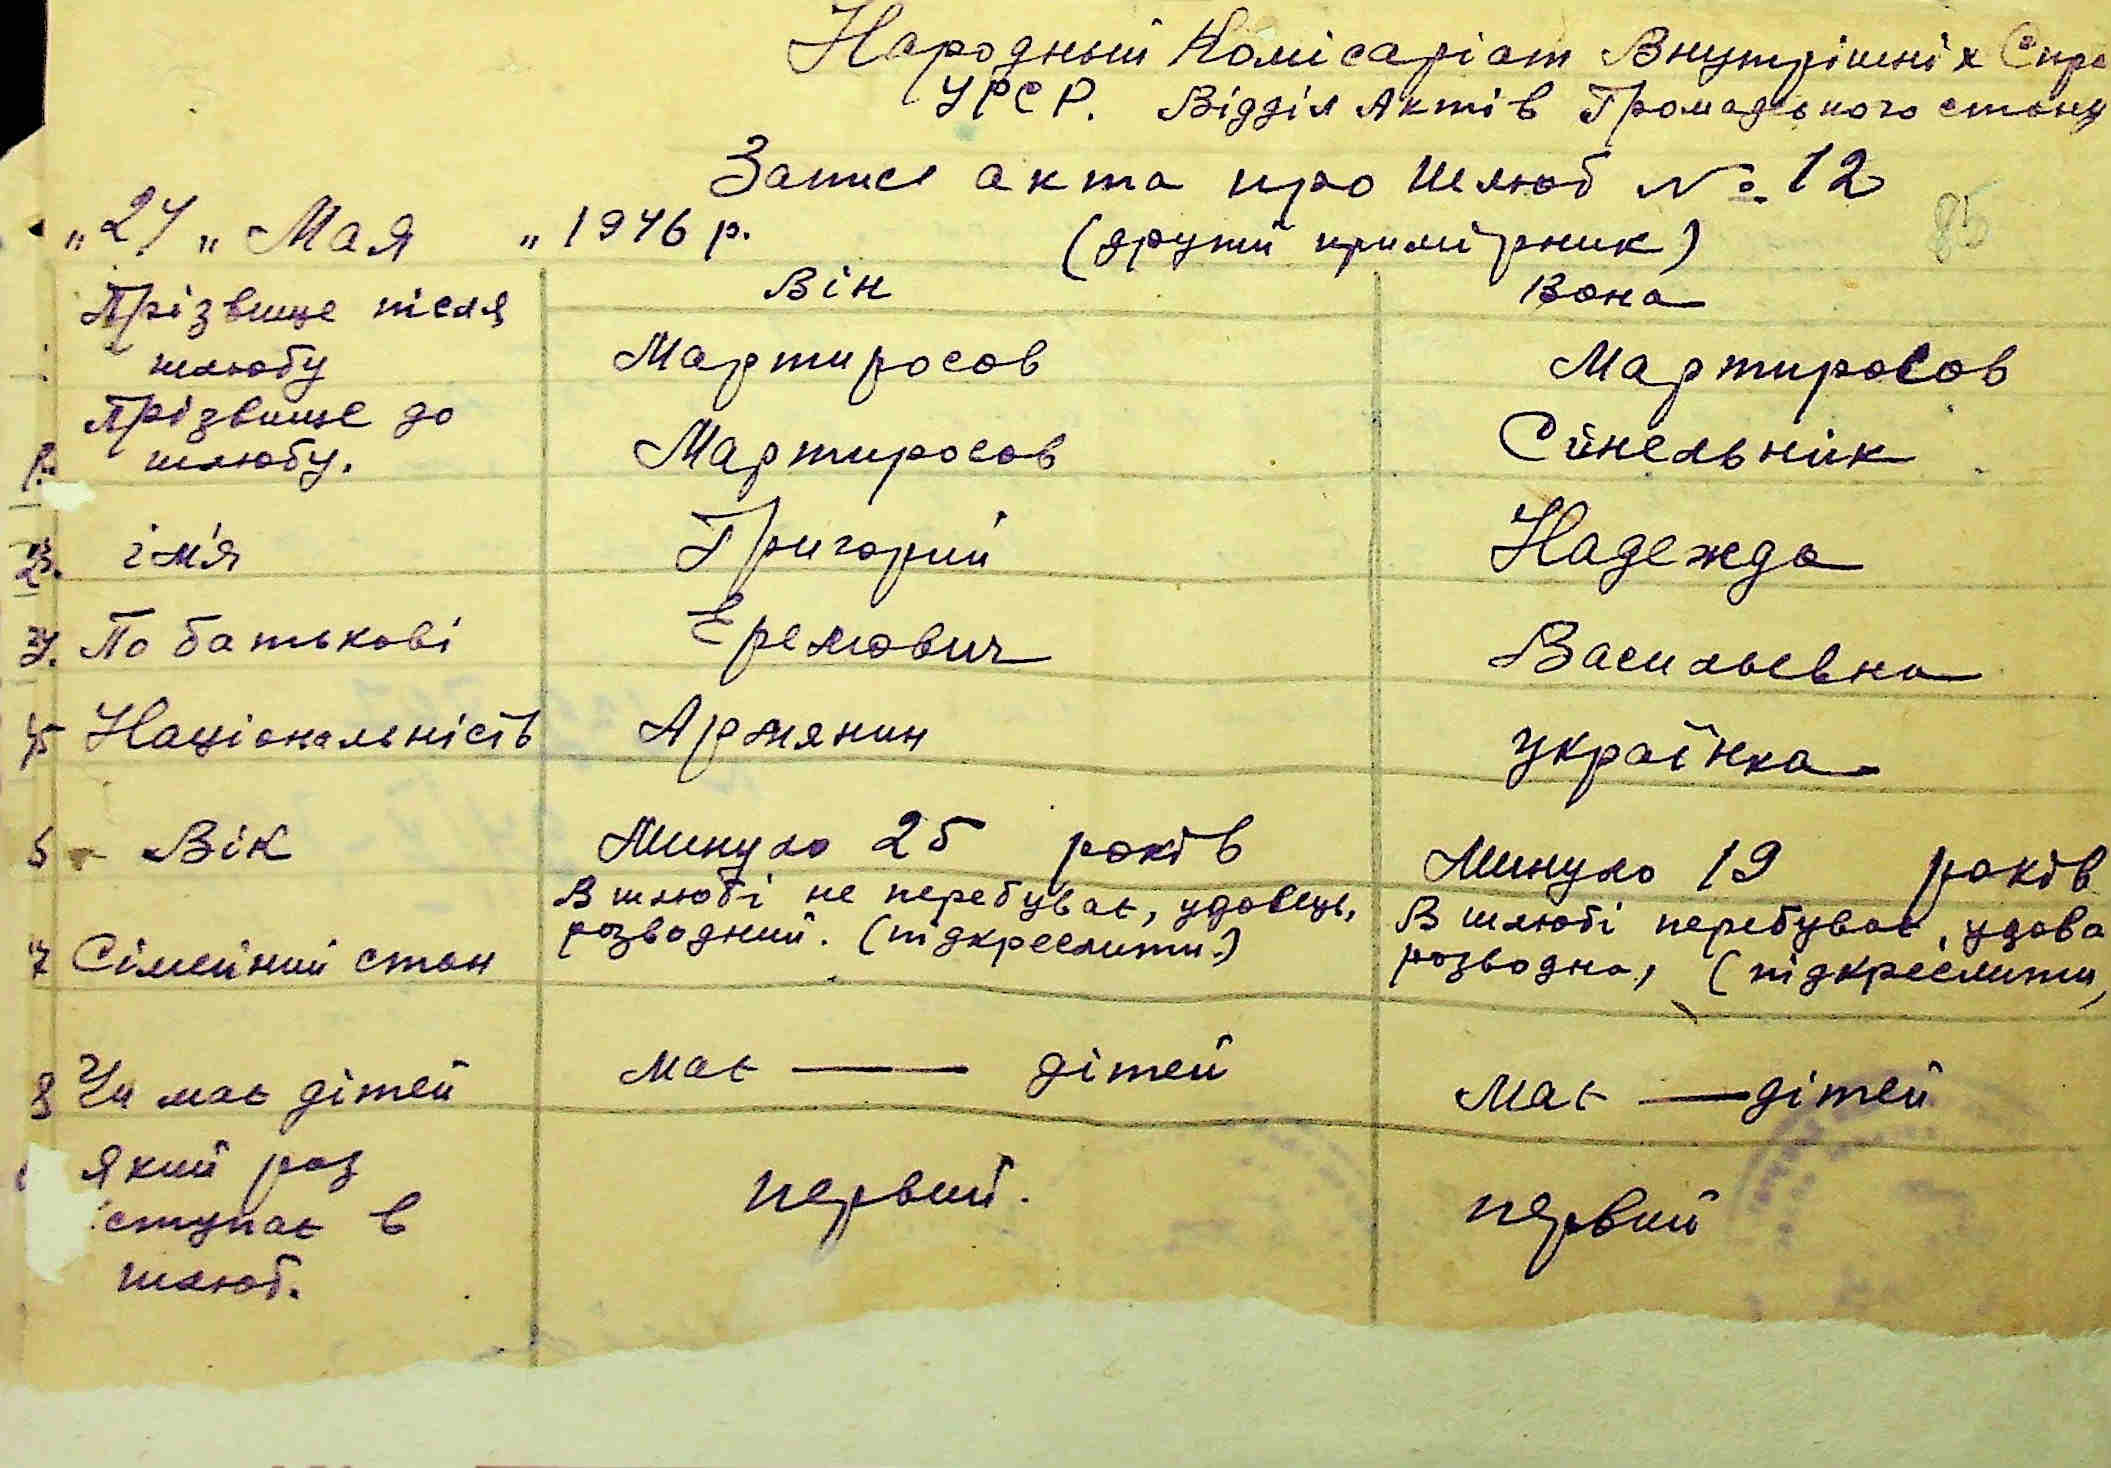 Народный Комісаріат Внутрішніх Спра
УРСР. Відділ Актів Громадського стану
Запис акта про шлюб № 12
85
„24„ Мая „ 1946 р.
(другий примірник)
Він
Вона
Прізвище після
шлюбу
Мартиросов
Мартиросов
Прізвище до
шлюбу.
Мартиросов
Сінельнік
ім'я
Григорий
Надежда
По батькові
Еремович
Васильевна
Національність
Армянин
українка
Вік
Минуло 25 років
Минуло 19 років
7 Сімейний стан
В шлюбі не перебуває, удовець,
розводний. (підкреслити.)
В шлюбі перебуває, удова
розводна, (підкреслити,
8 Чи має дітей
має — дітей
має — дітей
Який раз
ступає в
шлюб.
первий.
первий